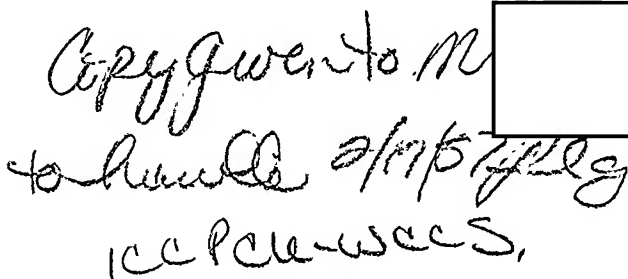 Copy given to M
to handle 2/19/57
1cc PCU-WCCS.